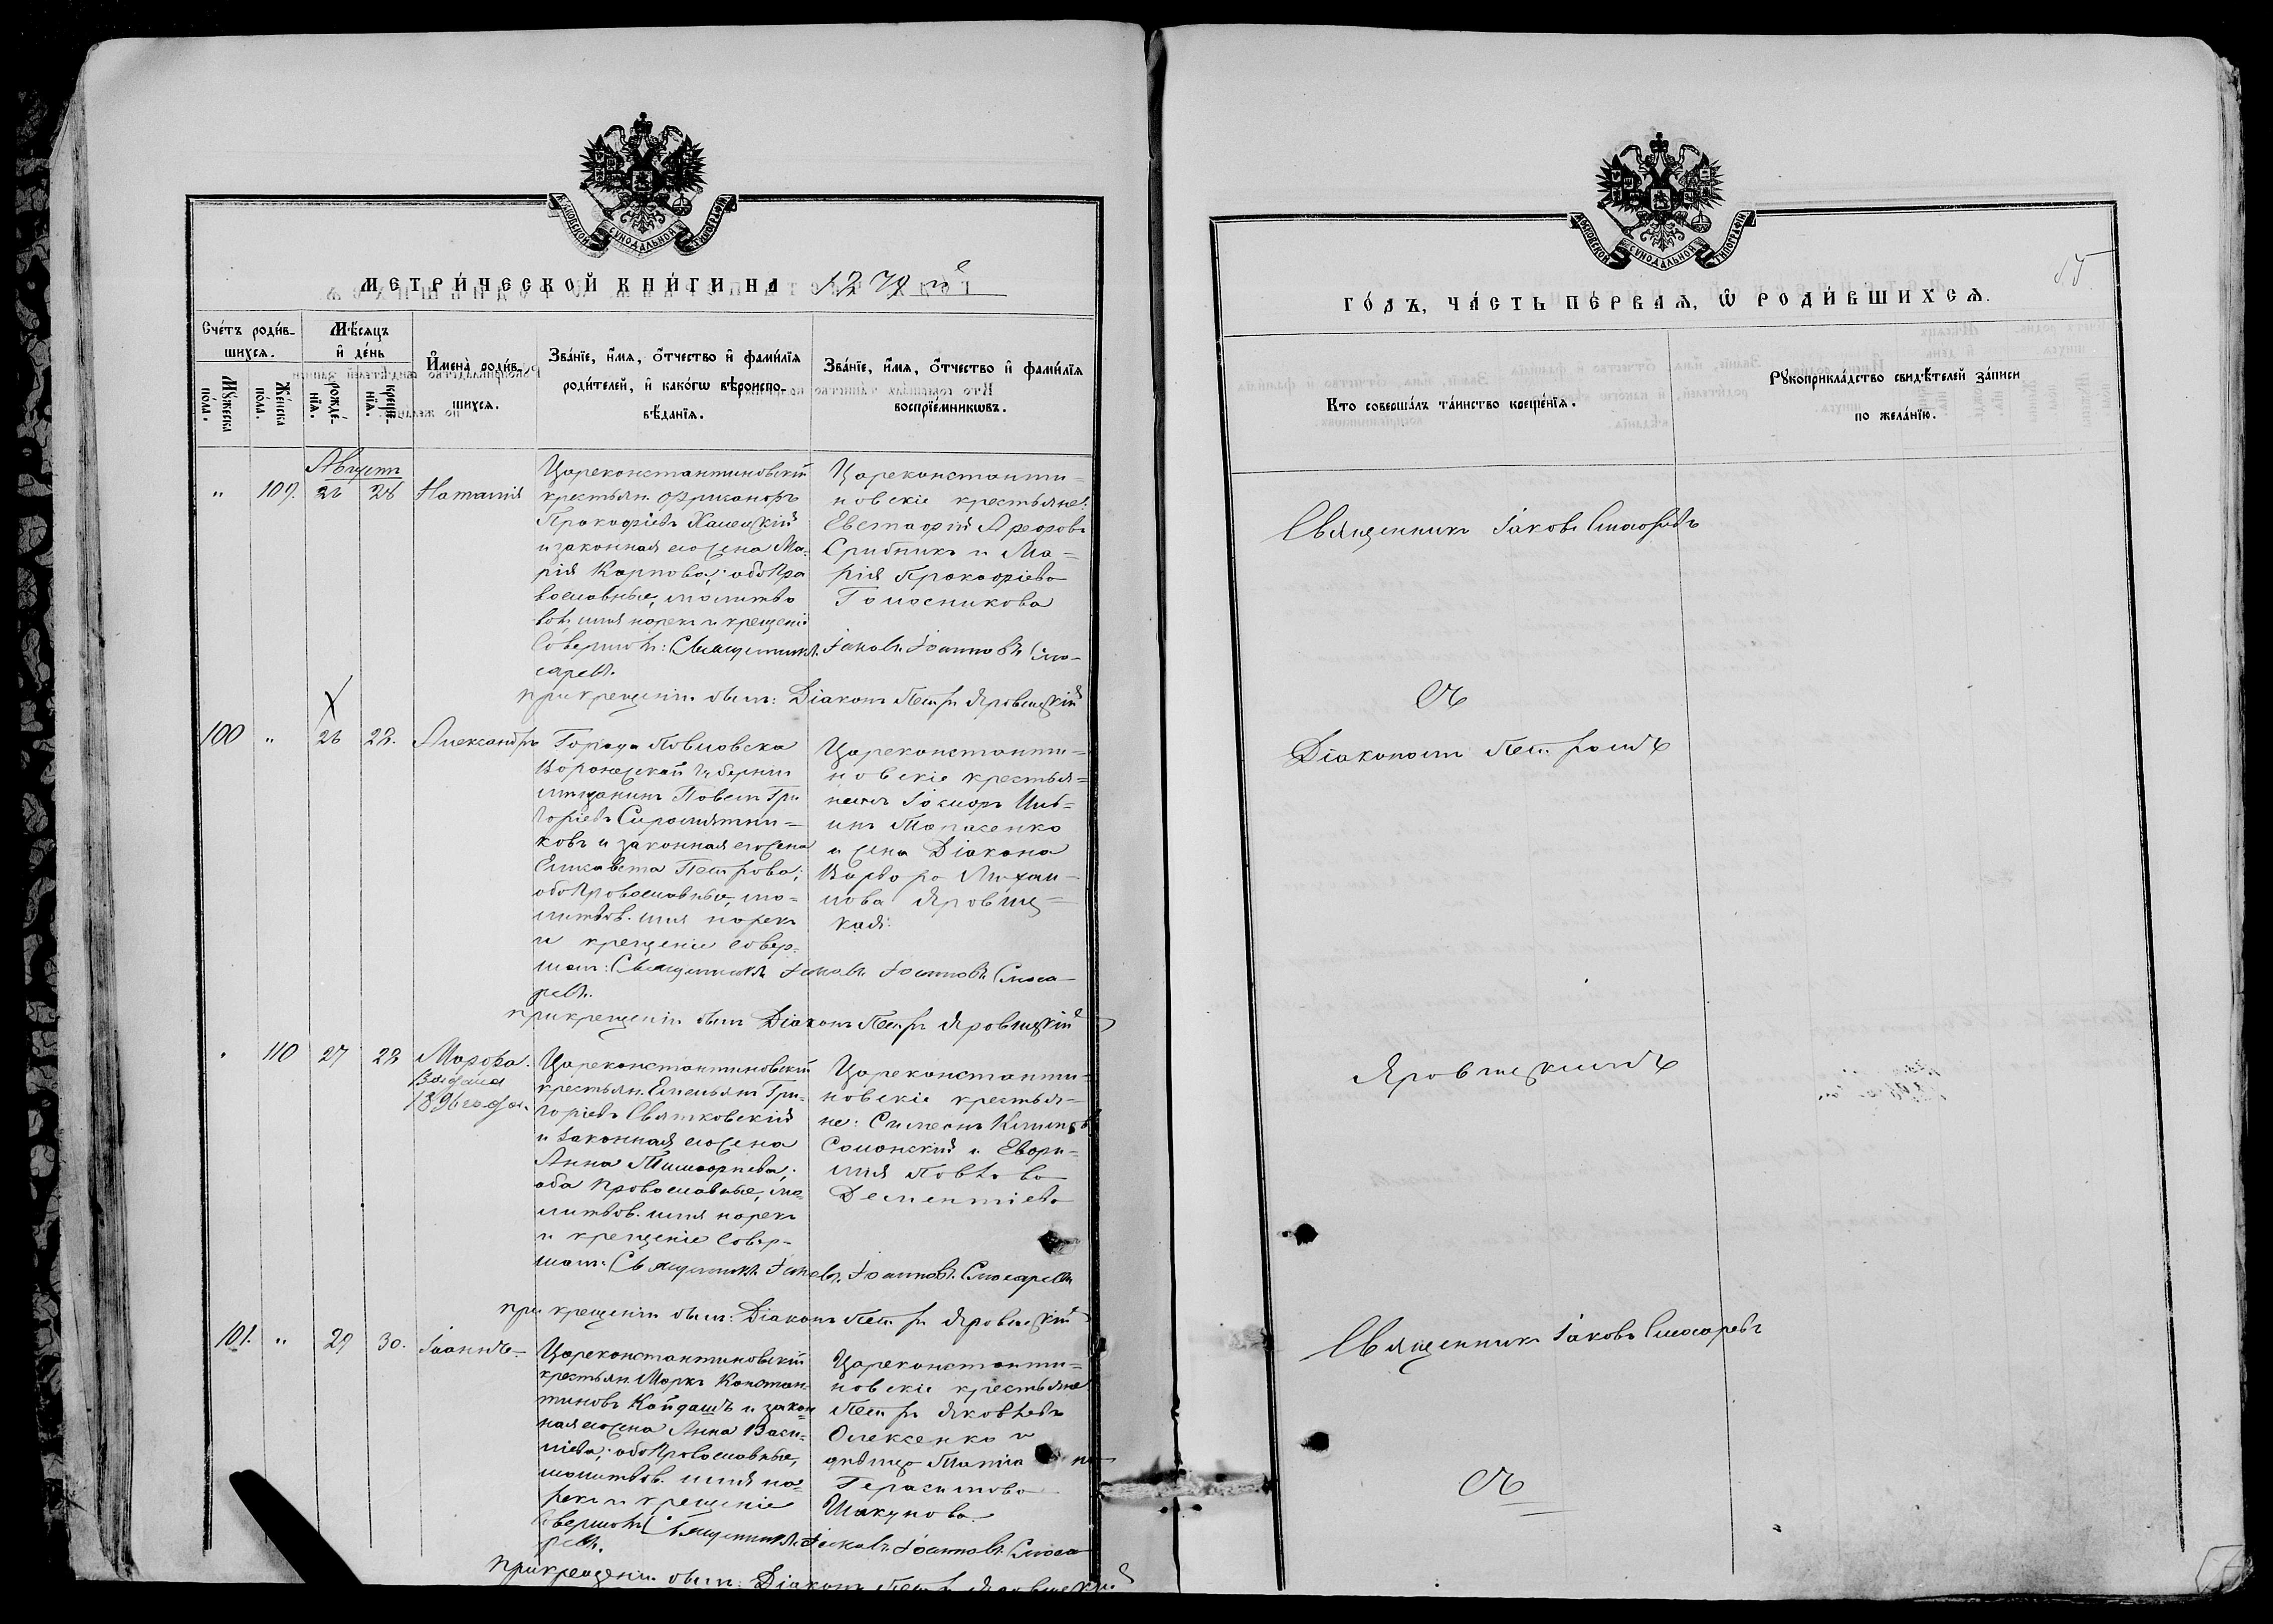 МОСКОВСКОЙ СѴНОДАЛЬНОЙ ТИПОГРАФІИ
МЕТРИ́ЧЕСКОЙ КНИ́ГИ НА 1879 й
Сче́тъ роди́вшихся.
Мѣ́сяцъ и҆ де́нь
Мꙋ́жеска по́ла.
Же́нска по́ла.
рожде́нїя.
креще́нїя.
И҆мена̀ роди́вшихся.
Зва́нїе, и҆́мя, ѻ҆́тчество и҆ фами́лїя
роди́телей, и҆ како́гѡ вѣроиспо-
вѣ́данїя.
Зва́нїе, и҆́мя, ѻ҆́тчество и҆ фами́лїя
воспрїе́мникѡвъ.
Августъ
" 109. 26 28 Наталія
Цареконстантиновскій
крестьян.
Прокофіевъ
и законная его жена Ма-
рія Карпова; оба Пра
вославные, молитво
вов. имя нарек и крещеніе
Совершовъ: Священникъ Іаковъ Іоанновъ Слю-
саревъ.
при крещеніи былъ: Діаконъ Петръ Яровицкій
Цареконстанти-
новскіе крестьяне:
Евстафій Арефовъ
Срибникъ и Ма-
рія Прокофіева
Голосникова
100 " 26 28. Александръ
Города Павловска
Воронежской Губерніи
мѣщанинъ Павелъ Гри
горіевъ Сиромятни-
ковъ и законная его жена
Елисавета Петрова;
оба Православные, мо-
литвов. имя нарек
и крещеніе совер-
шал: Священникъ Іаковъ Іоанновъ Слюса-
ревъ.
при крещеніи былъ Діаконъ Петръ Яровицкій
Цареконстанти-
новскіе крестья-
и жена Діакона
Варвара Михаи-
лова Яровиц-
кая.
" 110 27 28 Марфа.
Выдана
1896 года.
Цареконстантиновскій
крестьян. Емельянъ Гри-
горіевъ Святковскій
и законная его жена
Анна Тимофеева;
оба Православные, мо-
литвов. имя нарек
и крещеніе совер-
шал: Священникъ Іаковъ Іоанновъ Слюсаревъ
при крещеніи былъ: Діаконъ Петръ Яровицкій
Цареконстанти-
новскіе крестья-
не: Симеонъ Климовъ
Солонскій и Евфи-
мія Павлова
Дементіева
101. " 29 30. Іоаннъ
Цареконстантиновскій
крестьян. Маркъ Констан-
тиновъ Кайдашъ и закон
ная его жена Анна Васи-
лиева; оба Православные,
молитвов. имя на-
рек и крещеніе
совершовъ Священникъ Іаковъ Іоанновъ Слюса
ревъ.
при крещеніи былъ: Діаконъ Петръ Яровицкій
Цареконстанти-
новскіе крестьяне
Петръ Яковлевъ
Олексенко и
дѣвица
Герасимова
Шакунова
МОСКОВСКОЙ СѴНОДАЛЬНОЙ ТИПОГРАФІИ
ГО́ДЪ, ЧА́СТЬ ПЕ́РВАЯ, Ѽ РОДИ́ВШИХСЯ.
Кто совершáлъ тáинство креще́нїя.
Рꙋкоприкла́дство свидѣ́телей за́писи
по жела́нїю.
Священникъ Іаковъ Слюсаревъ
съ
Діакономъ Петромъ
Яровицкимъ
Священникъ Іаковъ Слюсаревъ
съ